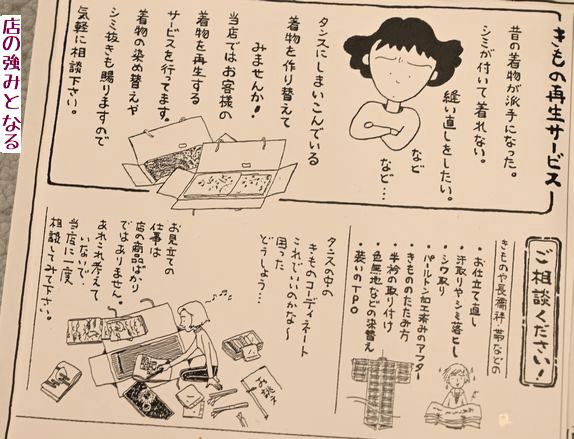 店の強みとなる
きもの再生サービス
昔の着物が派手になった。
シミが付いて着れない。
縫い直しをしたい。
など
など…
タンスにしまいこんでいる
着物を作り替えて
みませんか！
当店ではお客様の
着物を再生する
サービスを行ってます。
着物の染め替えや
シミ抜きも賜りますので
気軽に相談下さい。
ご相談ください！
きものや長襦袢、帯などの
・お仕立て直し
・汗取りやシミ落とし
・シワ取り
・パールトン加工済みのアフター
・きもののたたみ方
・半衿の取り付け
・色無地などの染替え
・装いのTPO
タンスの中の
きものコーディネート
これでいいのかな〜
困った
どうしよう…
お見立ての
仕事は
店の商品ばかり
ではありません。
あれこれ考えて
いないで、
当店に一度
相談してみて下さい。